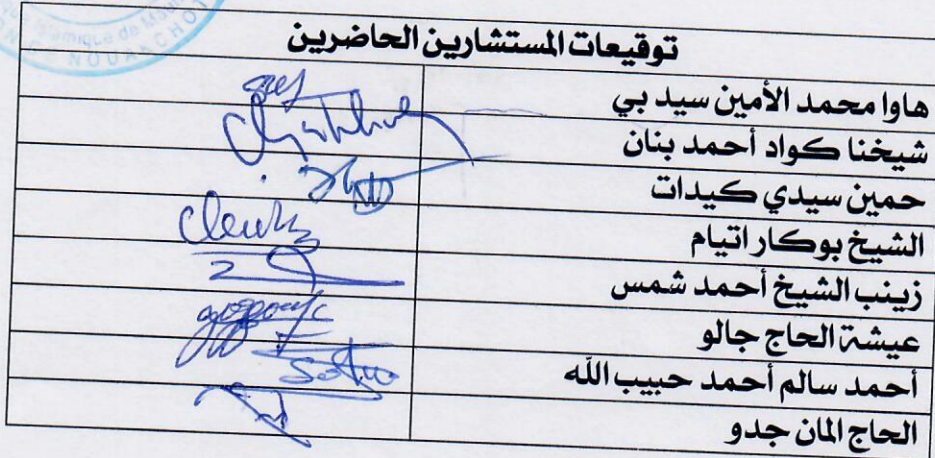 NOUAKCHOT
توقيعات المستشارين الحاضرين
هاوا محمد الأمين سيد بي
شيخنا كواد أحمد بنان
حمين سيدي كيدات
الشيخ بوكار اتيام
زينب الشيخ أحمد شمس
عيشة الحاج جالو
أحمد سالم أحمد حبيب الله
الحاج المان جدو